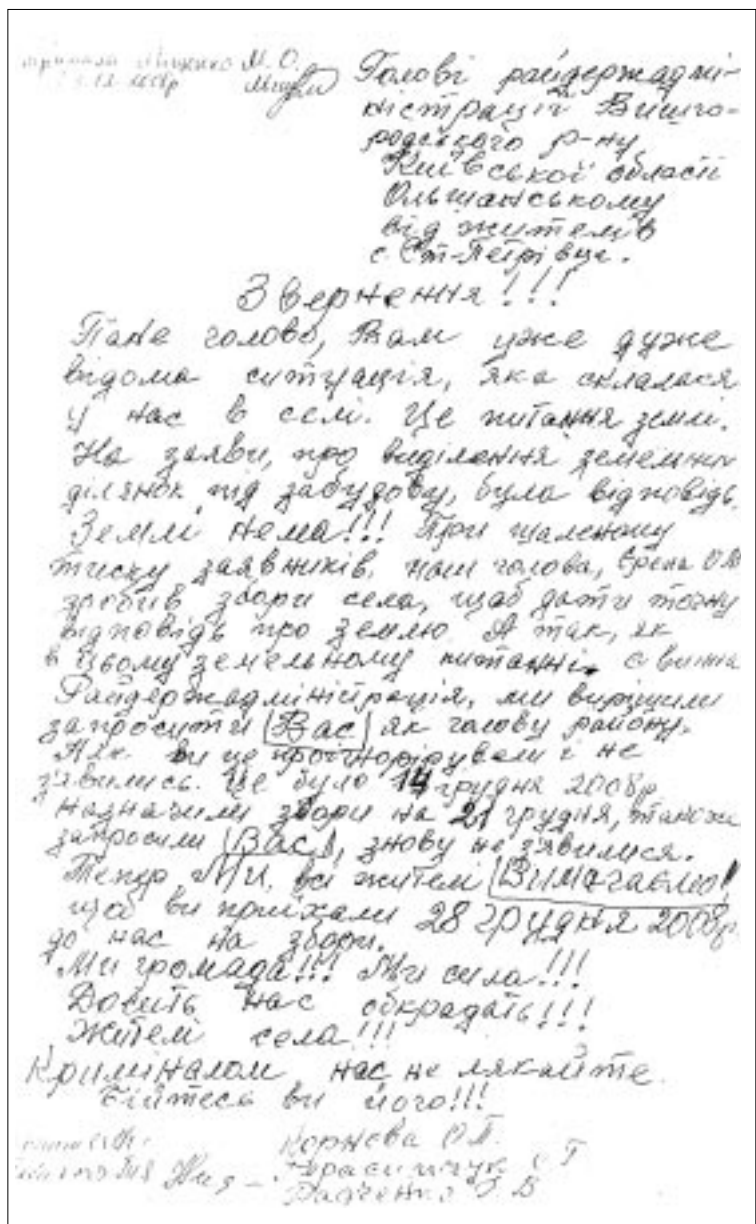 М. О.
Голові райдержадмі-
ністрації Вишго-
родського р-ну
Київської області
Ольшанському
від жителів
с. Ст-Петрівці.
Звернення!!!
Пане голово, Вам уже дуже
відома ситуація, яка склалася
у нас в селі. Це питання землі.
На заяви, про виділення земельних
ділянок під забудову, була відповідь.
Землі нема!!! При шаленому
тиску заявників, наш голова,
зробив збори села, щоб дати точну
відповідь про землю. А так, як
в цьому земельному питанні є винна
Райдержадміністрація, ми вирішили
запросити Вас як голову району.
Але ви це проігнорірували і не
з'явились. Це було 14 грудня 2008р
Назначили збори на 21 грудня, також
запросили Вас!, знову не з'явилися.
Тепер Ми, всі жителі Вимагаємо!
щоб ви приїхали 28 грудня 2008р.
до нас на збори.
Ми громада!!! Ми сила!!!
Досить нас обкрадать!!!
Жителі села!!!
Криміналом нас не лякайте.
Бійтесь ви його!!!
Корнєва О.П.
Герасимчук Г
Радченко В